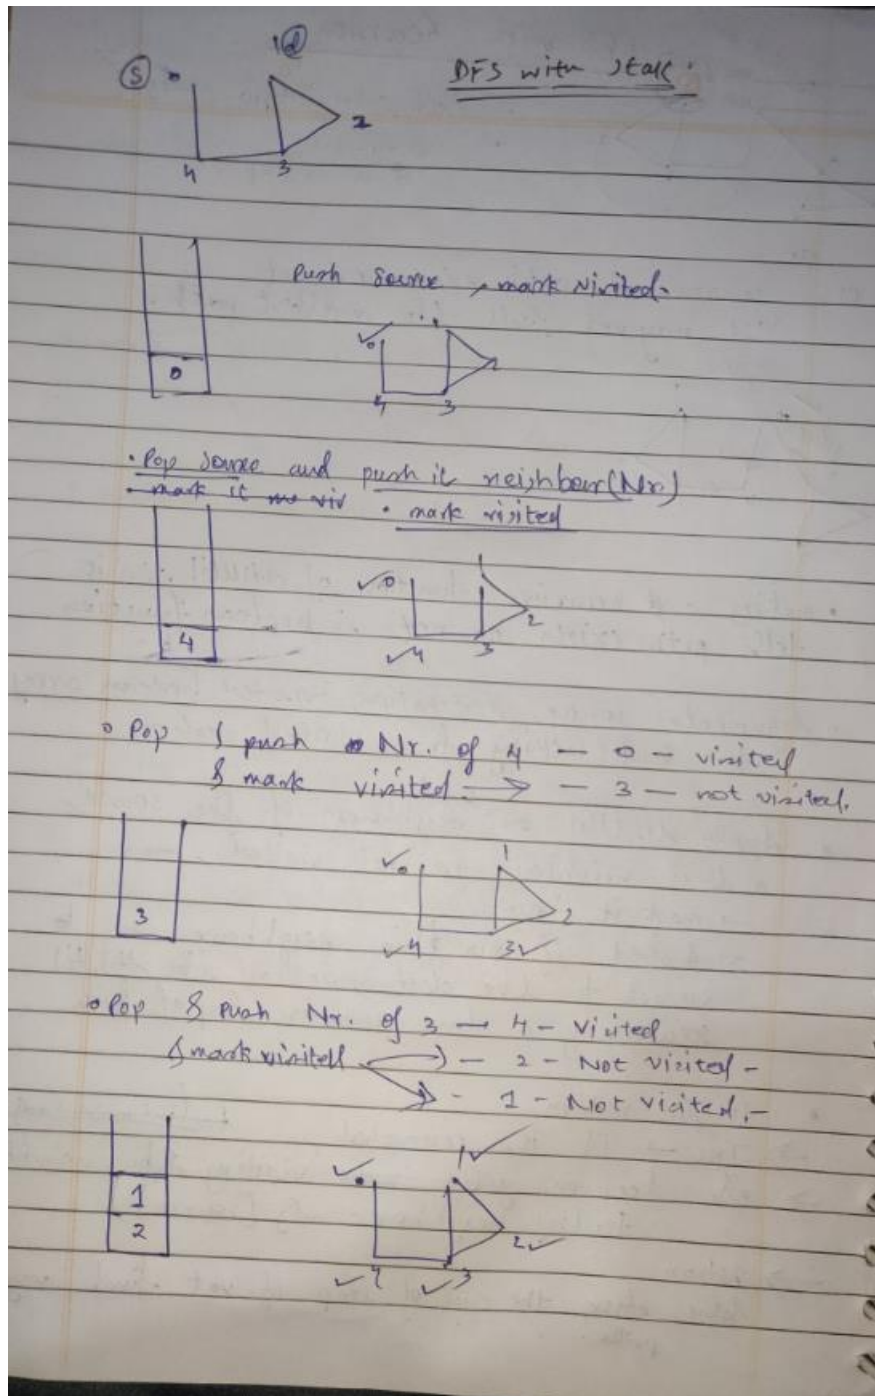 1 d
S 0 DFS with stack:
2
4 3
Push Source, mark Visited-
0
0 1
2
4 3
• Pop Source and push it neighbour (Nr.)
• mark it viv • mark visited
4
1
0
2
4 3
• Pop & push Nr. of 4 — 0 — visited
& mark visited: → — 3 — not visited.
0 1
2
3
4 3
• Pop & Push Nr. of 3 → 4 - Visited
& mark visited → — 2 - Not visited -
→ - 1 - Not Visited. -
1
1
2
2
4 3